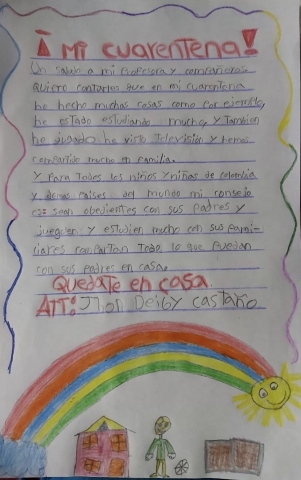 ¡Mi cuarentena!
Un saludo a mi Profesora y compañeros.
Quiero contarles que en mi cuarentena
he hecho muchas cosas como Por ejemplo,
he estado estudiando mucho, y También
he jugado he visto Televisión y hemos
compartido mucho en familia.
Y Para Todos los niños y niñas de colombia
y demas Paises del mundo mi consejo
es: sean obedientes con sus padres y
jueguen y estudien mucho con sus famí-
liares compartan Todo lo que Puedan
con sus padres en casa.
Quedate en casa
ATT: Jhon Deiby castaño